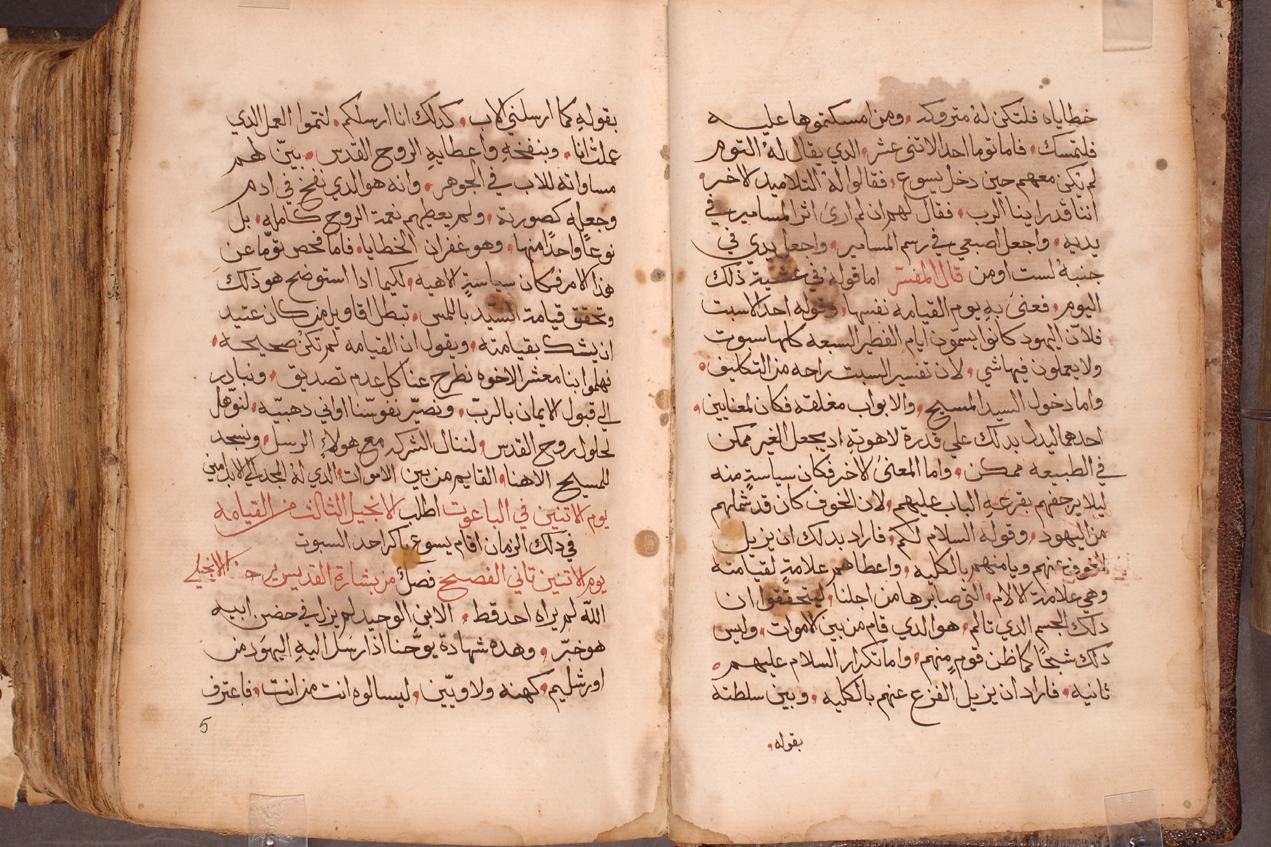 خطاياه فلتكن له متروكه، ومن مسكتموها عليه
فلتمسك، فاما توما احد الاثنى عشر، الدي يقال له التوم
لم يكن معهم حين دخل يسوع، فقالوا له التلاميد الاخر،
اننا قد راينا الرب، فقال لهم ان لم ارى اثر المسامير في
يديه، واجعل اصبعي في رسم المسامير، واجعل يدي في
جنبه لست اومن قال المفسّر اما قوله في عشية ذلك
اليوم، فعنى به يوم القيامة نفسها، وقوله احد السبت
فلآن اليهود كانوا يسمون ايام الفطير السبعه كلها سبوت
ولا يعملون فيها شي، لان تفسير السبت راحه من التكليف،
واما دخول السيد المسيح، والابواب مغلقه فكان لمعناين،
احدهما ليدل بدلك على قدرة لاهوته اد يجعل الغير ممكن
في الطبيعه ممكن، واما المعنى الاخر فكان سياسةٍ منه
ليلا يرجفهم بقرعه الباب عليهم، لان الخوف كان قد شملهم
من اليهود، وقوله السلام لكم، فاراد بدلك ان يزيل
الخوف عنهم ويامنهم بالكليه، واعطاهم علامةٍ لقيامته
وهي علامة الالام، التي صابرها من اجلنا، ليتحققوا ان
دلك الجسم الدي تالم، هو الدي قام من بين الاموات، وليس
دلك شبحًا كما ظن قومٍ منهم، واما تكرار السلام عليهم،
ثانيه، فاراد ان يزيل الفزع عنهم بالكليه، وبين سلطته
بقوله،
بقولهِ كما ارسلني الاب، كدلك انا ارسلكم، لتتموا العمل الدي
عملت انا، وبنفخهِ واعطايهِ الروح القدس، بيّن لهم
مساواته للاب في الجوهر، وانه هو الدي نفخ في ادم
وجعله كصورته، ولم يعطيهم نعمة الروح كامله، بل
نوعًا واحدًا منها، وهو غفران الخطايا، فاما فحص توما عن
هدا الامر فكان سياسةٍ لاهيه، لكيما ادا استوضح هو ذلك
وتحقق قيامة السيّد باللمس، تبطل اقاويل من كان عتيد
ان يشك بقيامته، ويقول ان القيامه لم تكن صحيحه،
فهلموا بنا معشر الاخوه نطرح عنا كل عدم تصديق، ونبادر
الى قبول الايمان بالربّ، ونصيّر نفوسنا اواني دهبيّه، لنوهل
لحلول روح القدس، لننال الشركه مع هولاءِ الرسل، ونسجد
للمسيح الاهنا، القايم من بين الاموات الدي له المجد الى الابد امين
يوم الاتنين في الباعوت اطلب الانجيل الثالث من القيامه
في دلك الزمان اقام يسوع باكر احد السبوت
يوم الاتنين ثاني الفصيح فصلٌ من بشارة القديس يوحنا الانجيلي
اللّه لم يراه احد قط، الابن الوحيد لم يزل في حضن ابيه
هو خبّر، وهده شهادة يوحّنا اذ ارسل اليهِ اليهود من
اورشليم، كهنه ولاويّين، ليسالوه انت من انت، فاعترف
5